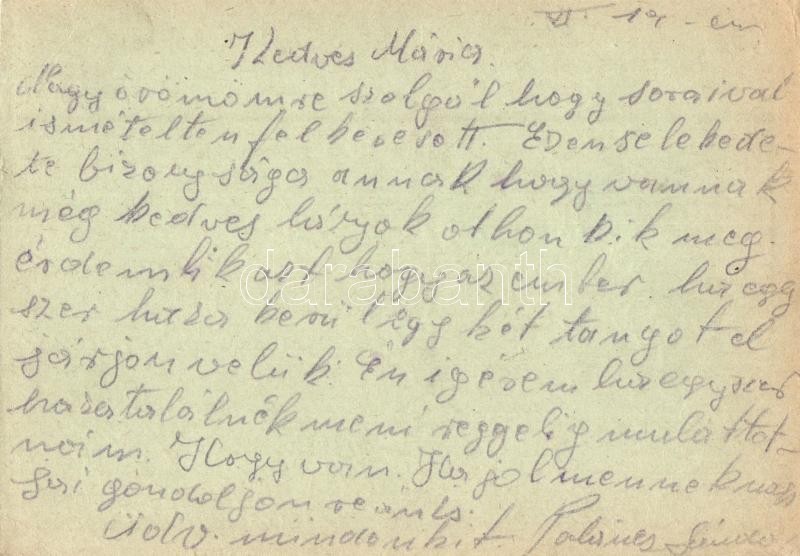 VI. 19-én
Kedves Mária.
Nagy örömömre szolgál hogy soraival
ismételten felkeresett. Ezen selekede-
te bizonysága annak hogy vannak
még kedves lányok othon kik meg
érdemlik azt hogy az ember ha egy
szer haza kerül egy két tangot el
járjon velük. Én igérem ha egyszer
haza találnék meni reggelig mulattat-
nám. Hogy van. Ha jol mennek
gondoljon reánk.
Üdv. mindenkit
darabanth